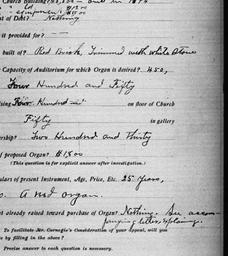 Church Building
nt of Debt? Nothing
it provided for? — —
built of? Red Brick, Trimmed with white Stone
Capacity of Auditorium for which Organ is desired? 450,
Four Hundred and Fifty
ising Four Hundred on floor of Church
Fifty in gallery
ership? Two Hundred and Thirty
f proposed Organ? $1800
(This question is for explicit answer after investigation.)
ulars of present Instrument, Age, Price, Etc. 25 Years,
A reed organ.
nt already raised toward purchase of Organ? Nothing. See accom-
panying letter, explaining.
To facilitate Mr. Carnegie's Consideration of your appeal, will you
be by filling in the above?
Precise answer to each question is necessary.